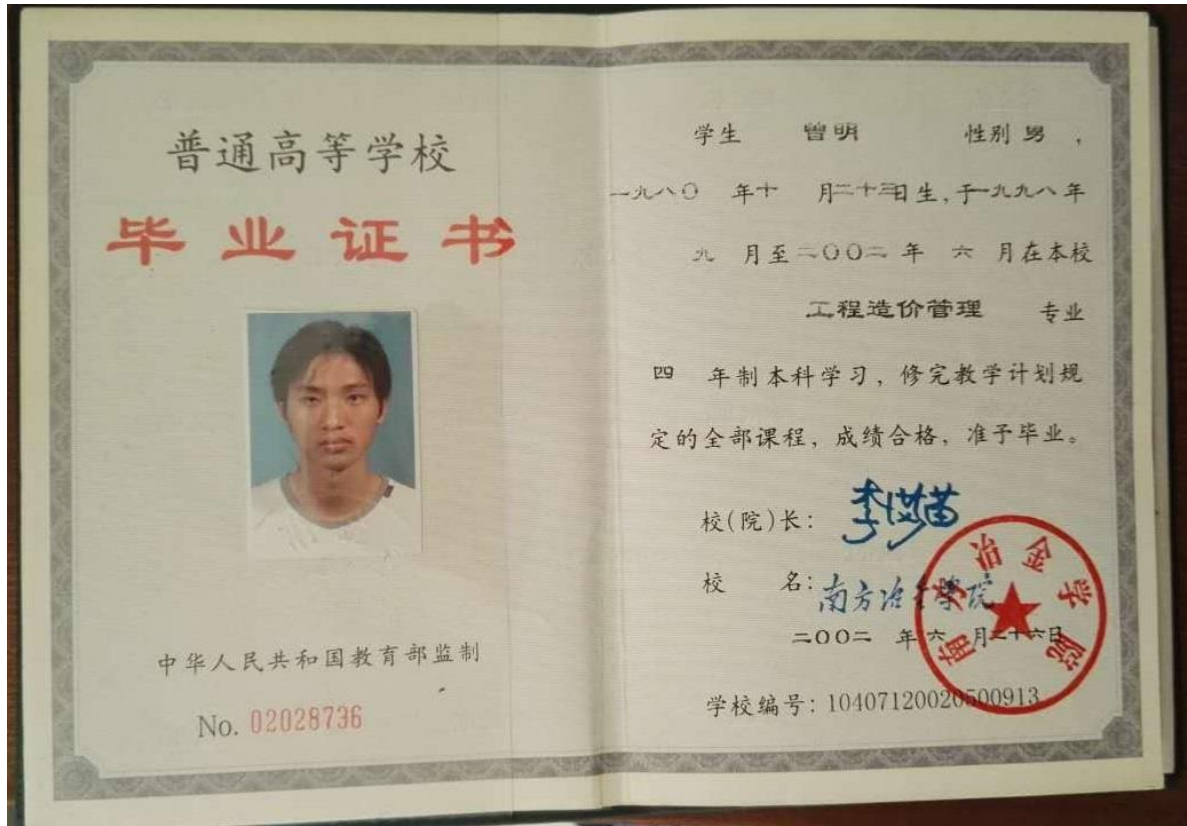 普通高等学校
毕业证书
中华人民共和国教育部监制
No. 02028736
学生 曾明 性别 男,
一九八〇 年十 月二十三日生,于一九九八年
九 月至二〇〇二 年 六 月在本校
工程造价管理 专业
四 年制本科学习,修完教学计划规
定的全部课程,成绩合格,准予毕业。
校(院)长:
校 名:南方冶金学院
二〇〇二 年 六 月二十六日
学校编号:10407120020500913
南方冶金学院